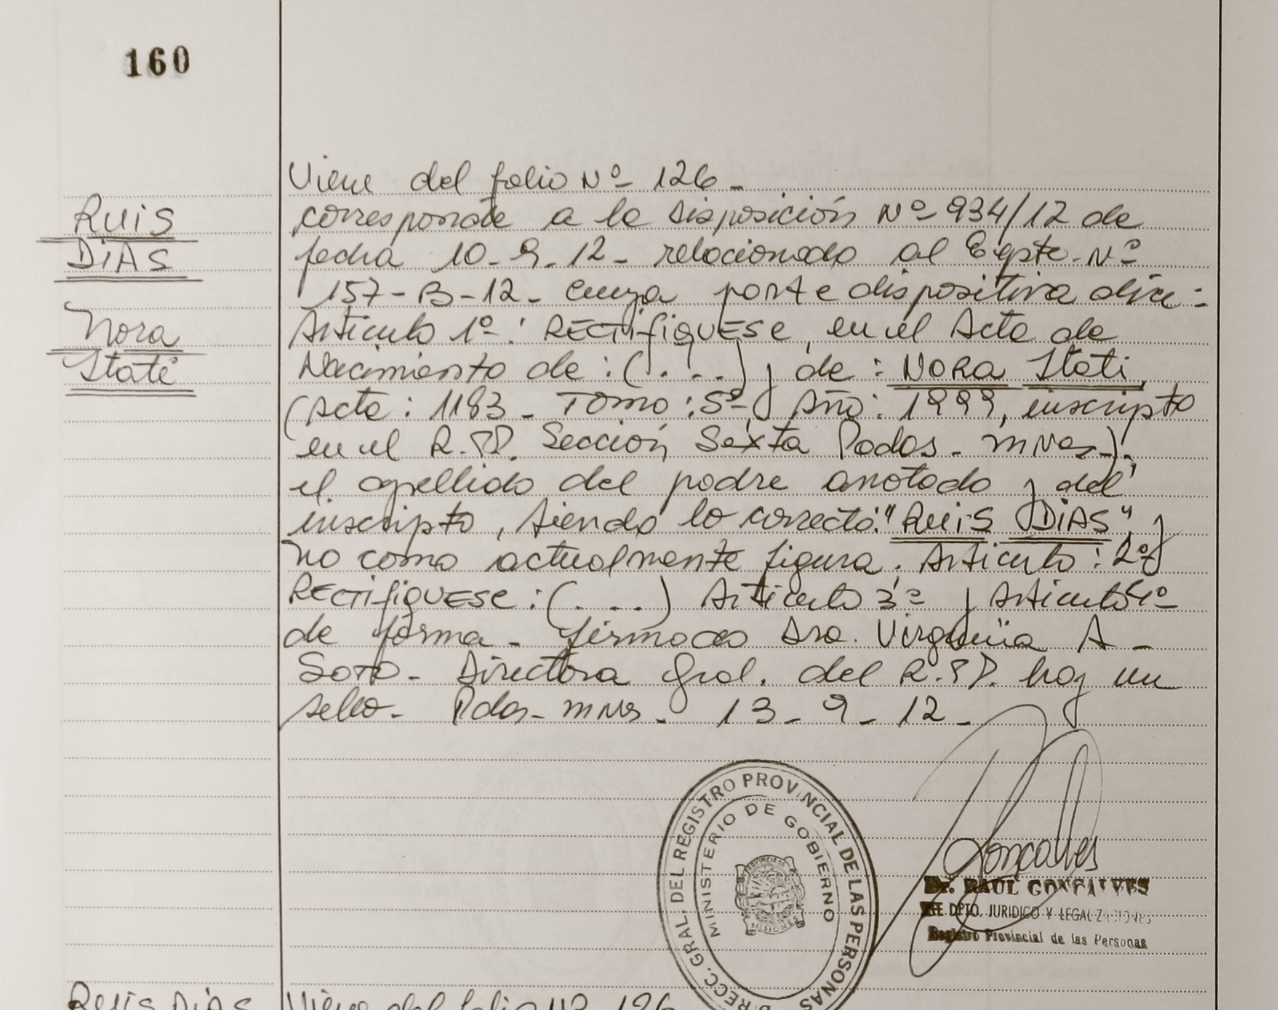 160
Viene del folio Nº 126 -
RUIS
DiAS
Nora
Stati
corresponde a la disposición Nº 934/12 de
fecha 10-9-12- relacionado al Expte. Nº
157-B-12- cuya parte dispositiva dice:
Artículo 1º: RECTifíQUESE, en el Acta de
Nacimiento de: (. . . .) y de: NORA Stati
(Acta: 1183 - Tomo: 5º y Año: 1999, inscripto
en el R.PP. Sección Sexta Pdas. - mnes.);
el apellido del padre anotado y del
inscripto, siendo lo correcto: "Ruis DiAS" y
no como actualmente figura. Artículo: 2º
RECTifíQUESE: (. . . .) Artículo 3º y Artículo 4º
de forma - firmado Dra. Virginia A -
Soto - Directora Gral. del R.PP. hay un
sello - Pdas - mnes - 13 - 9 - 12 -
DIRECC. GRAL. DEL REGISTRO PROVINCIAL DE LAS PERSONAS
MINISTERIO DE GOBIERNO
MISIONES
Goncalves
Dr. RAUL GONCALVES
JEFE DPTO. JURIDICO Y LEGALIZACIONES
Registro Provincial de las Personas
Ruis DiAS Viene del folio Nº 126